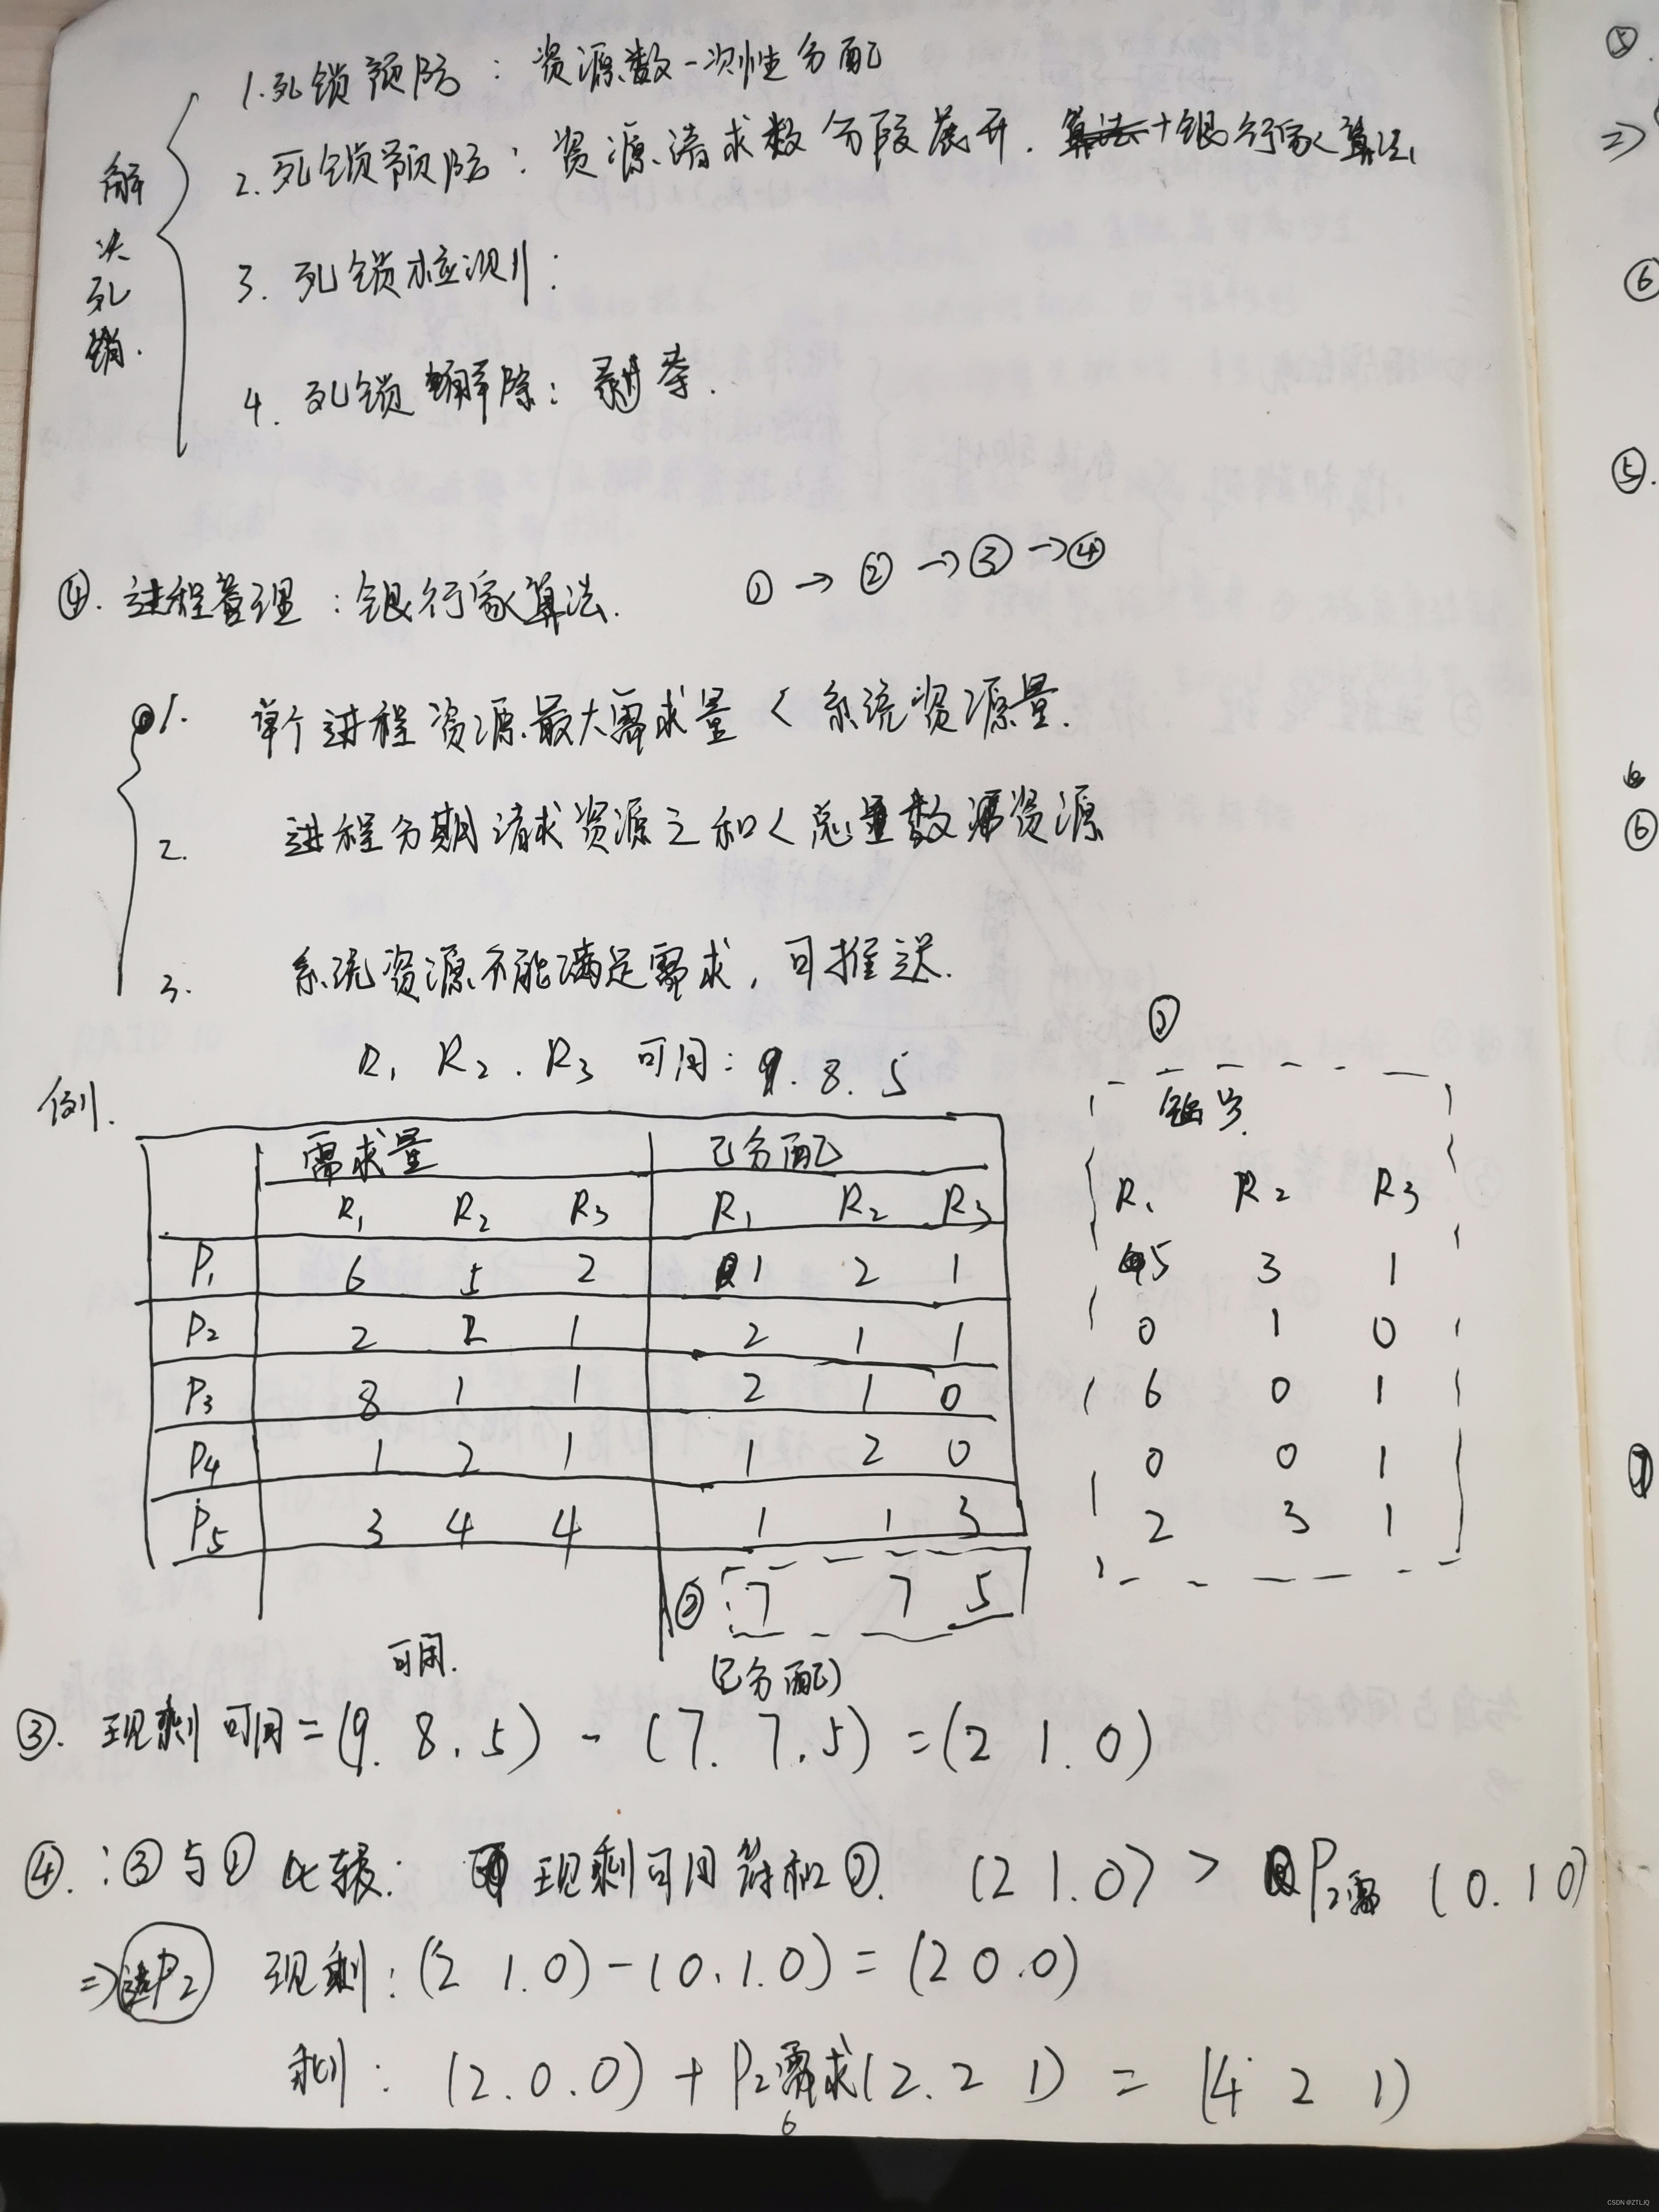 解决死锁.
1.死锁预防：资源数一次性分配
2.死锁预防：资源请求数分段展开. 算法+银行家算法
3. 死锁检测：
4. 死锁解除：剥夺.
④. 进程管理：银行家算法. ①→②→③→④
1. 单个进程资源最大需求量 < 系统资源量.
2. 进程分期请求资源之和<总量数资源
3. 系统资源不能满足需求，可推迟.
例. R1 R2. R3 可用：9. 8. 5
①
需求量 已分配 R1 R2 R3
R1 R2 R3 R1 R2 R3
P1 6 5 2 1 2 1 5 3 1
P2 2 2 1 2 1 1 0 1 0
P3 8 1 1 2 1 0 6 0 1
P4 1 2 1 1 2 0 0 0 1
P5 3 4 4 1 1 3 2 3 1
② 7 7 5
可用. (已分配)
③. 现剩可用=(9. 8. 5) - (7. 7. 5) =(2 1. 0)
④.：③与①比较： 现剩可用符和①. (2 1.0) > P2需 (0.1 0)
⇒选P2 现剩：(2 1.0)-(0.1.0)=(2 0.0)
剩：(2.0.0) + P2需求(2.2 1) = (4 2 1)
6
⑤.
⇒
⑥
⑤.
6
⑥
CSDN @ZTLJQ